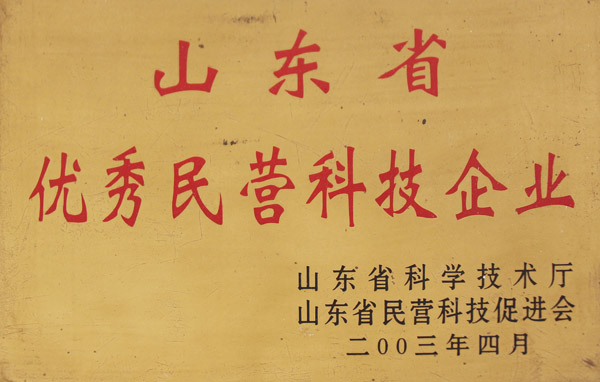 山东省
优秀民营科技企业
山东省科学技术厅
山东省民营科技促进会
二00三年四月